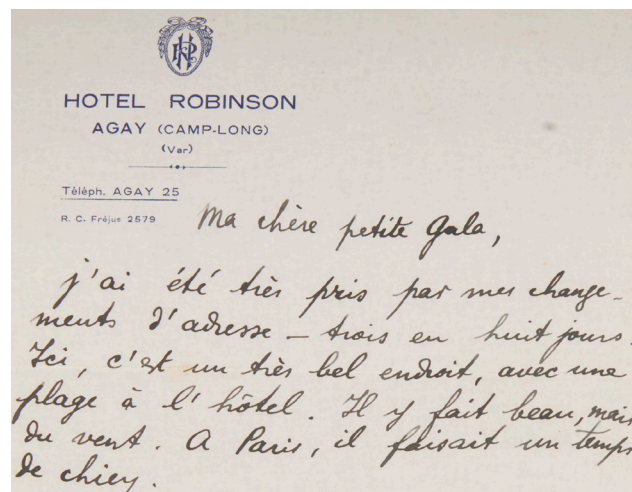 HOTEL ROBINSON
AGAY (CAMP-LONG)
(Var)
Téléph. AGAY 25
R. C. Fréjus 2579
Ma chère petite Gala,
j'ai été très pris par mes change-
ments d'adresse – trois en huit jours.
Ici, c'est un très bel endroit, avec une
plage à l'hôtel. Il y fait beau, mais
du vent. A Paris, il faisait un temps
de chien.